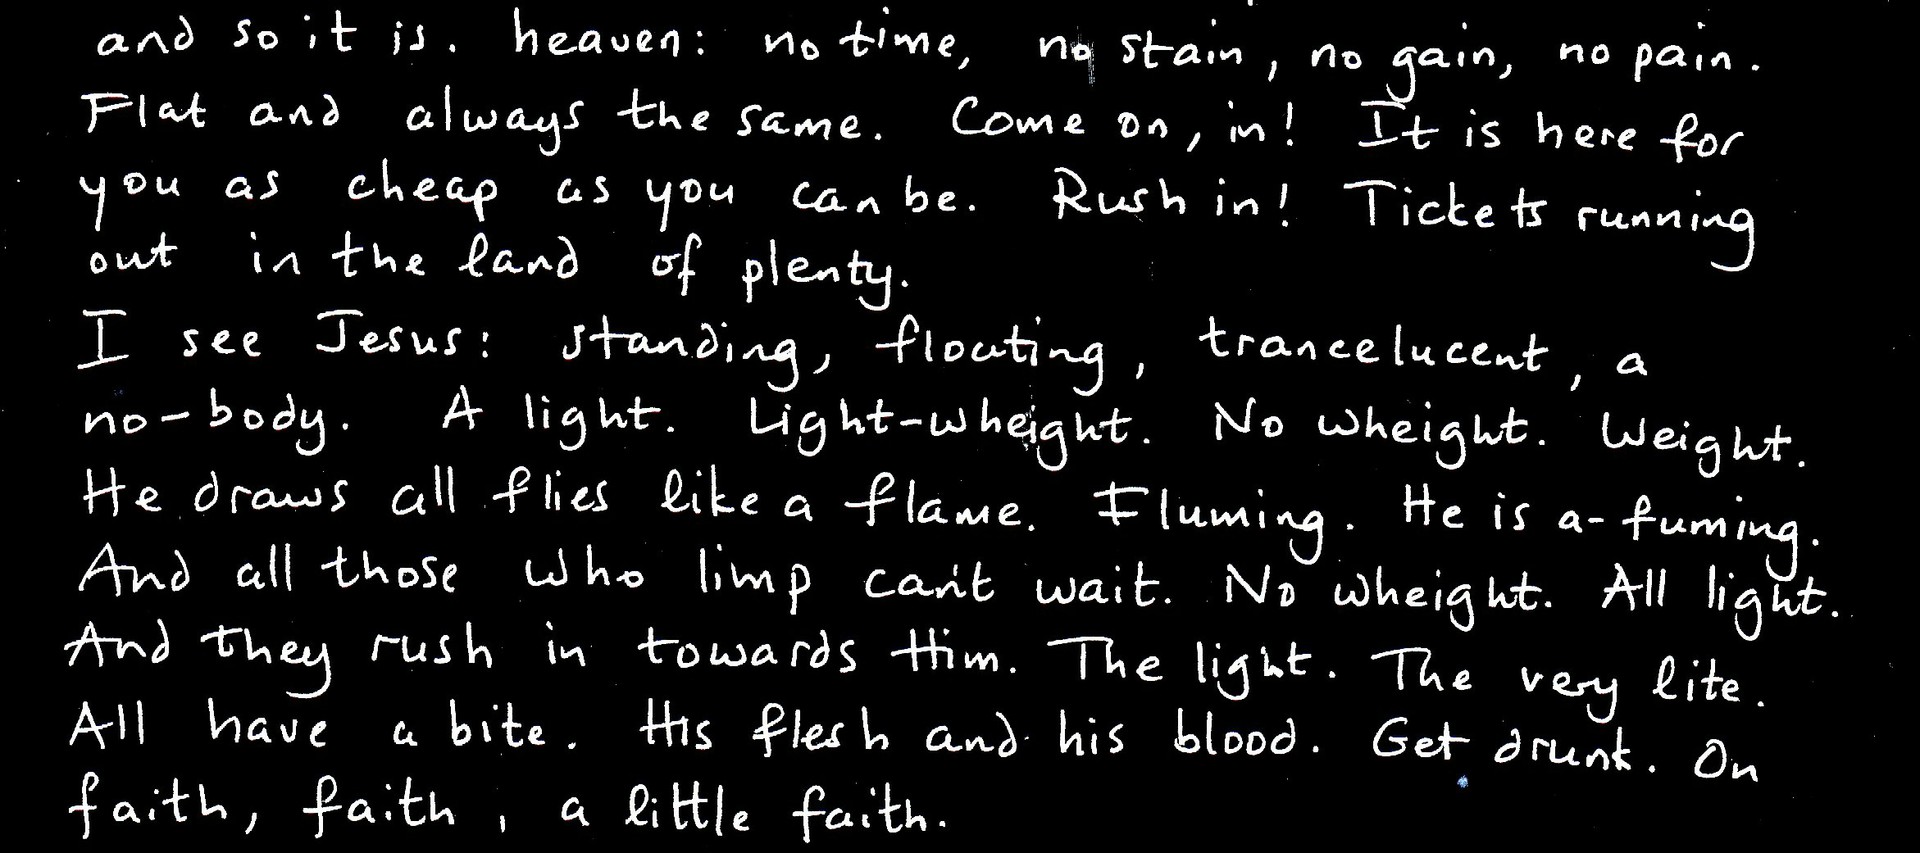 and so it is. heaven: no time, no stain, no gain, no pain.
Flat and always the same. Come on, in! It is here for
you as cheap as you can be. Rush in! Tickets running
out in the land of plenty.
I see Jesus: standing, floating, trancelucent, a
no-body. A light. Light-wheight. No wheight. Weight.
He draws all flies like a flame. Fluming. He is a-fuming.
And all those who limp can't wait. No wheight. All light.
And they rush in towards Him. The light. The very lite.
All have a bite. His flesh and his blood. Get drunk. On
faith, faith, a little faith.